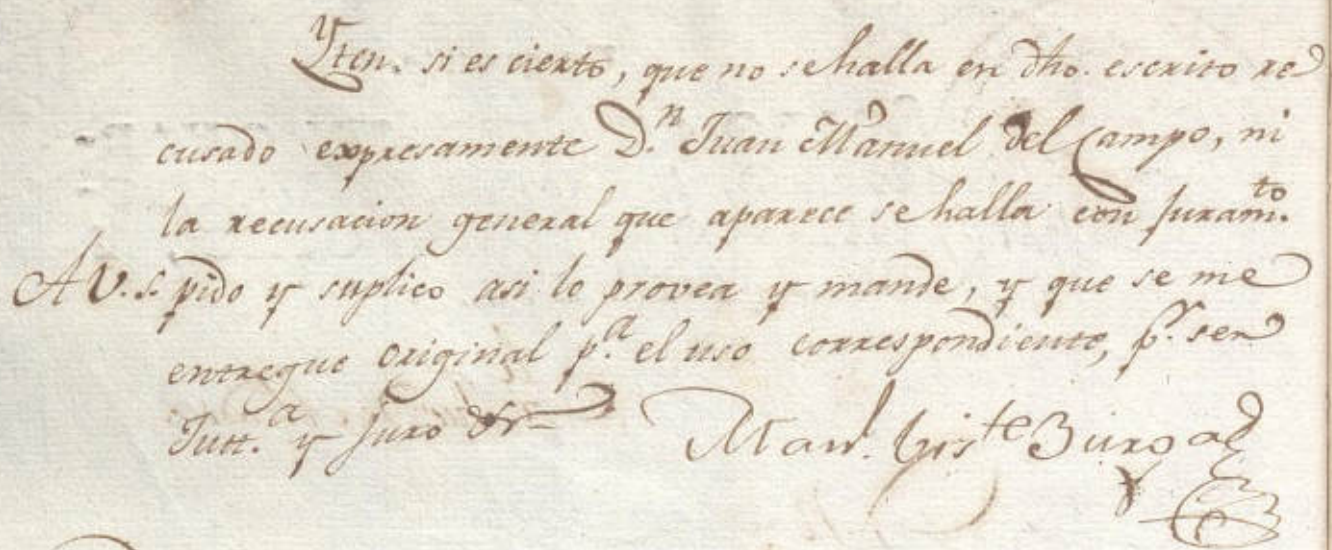 Yten. si es cierto, que no se halla en dho. escrito re
cusado expresamente D.n Juan Manuel del Campo, ni
la recusacion general que aparece se halla con juram.to
A V. S. pido y suplico asi lo provea y mande, y que se me
entregue original p.a el uso correspondiente, p.r ser
Just.a y juro &a
Man.l Vis.te Burgos